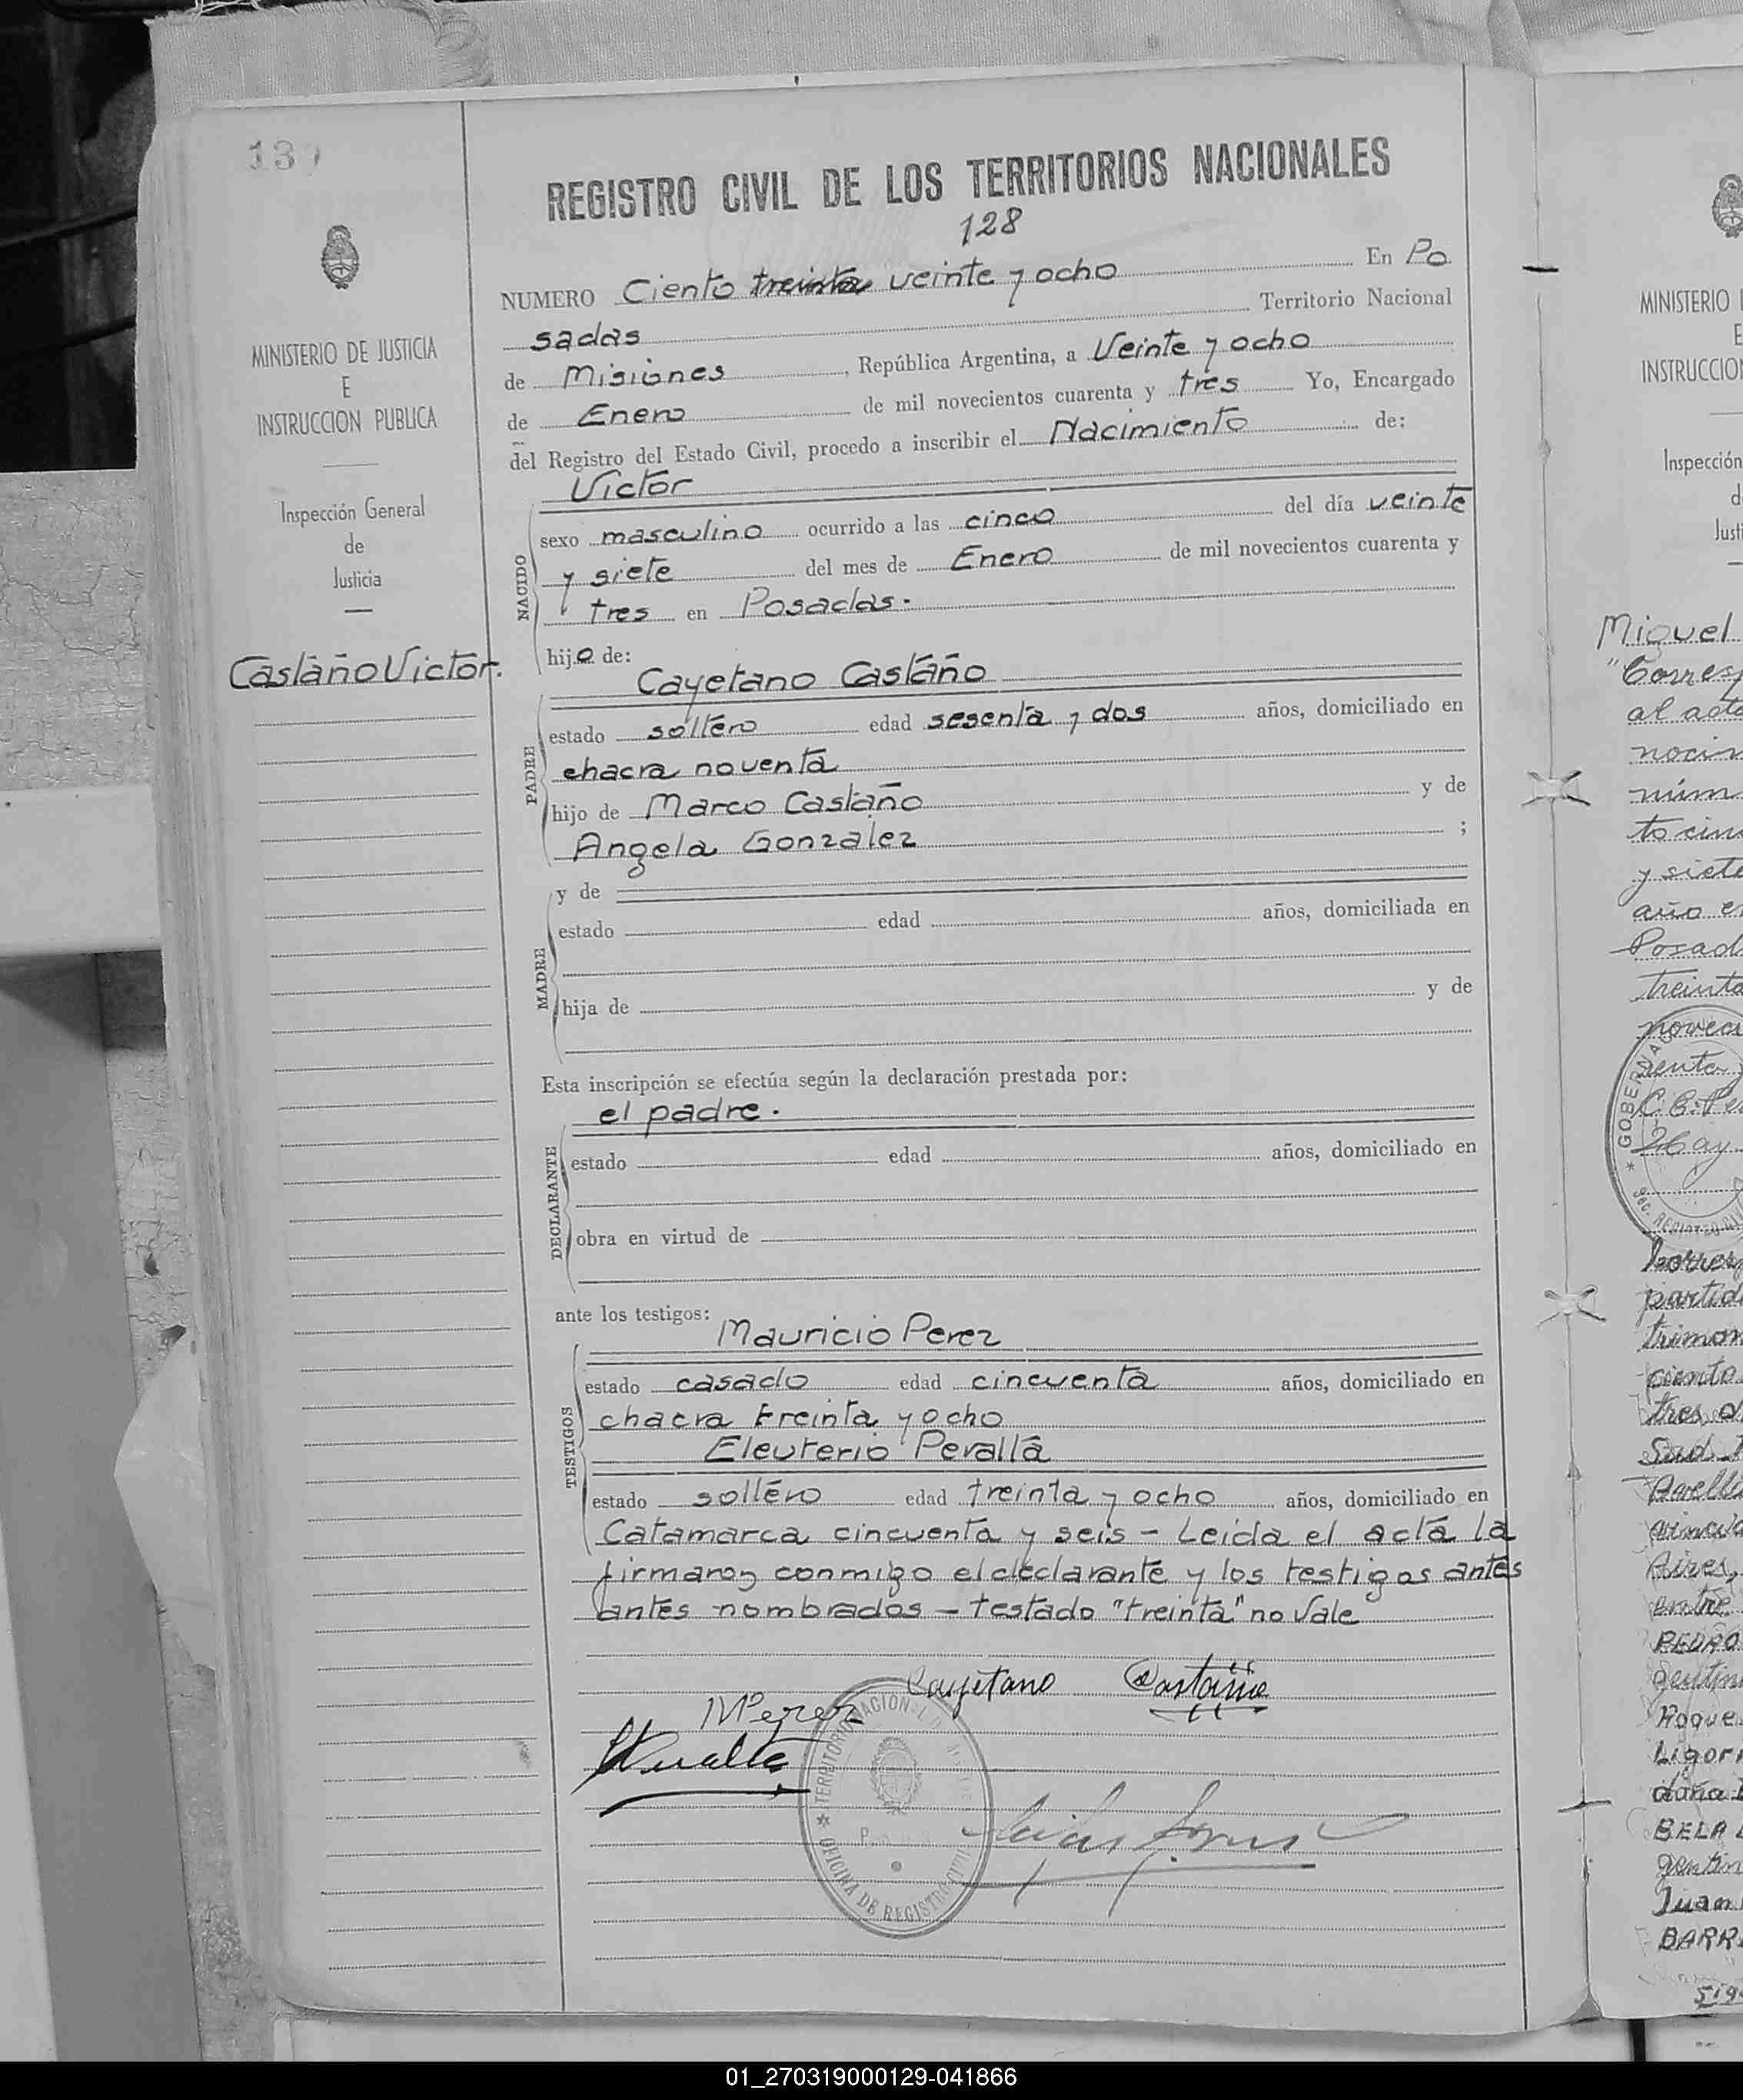 REGISTRO CIVIL DE LOS TERRITORIOS NACIONALES
128
MINISTERIO DE JUSTICIA
E
INSTRUCCION PUBLICA
Inspección General
de
Justicia
Castaño Victor.
NUMERO Ciento treinta veinte y ocho En Po
sadas Territorio Nacional
de Misiones, República Argentina, a Veinte y ocho
de Enero de mil novecientos cuarenta y tres Yo, Encargado
del Registro del Estado Civil, procedo a inscribir el Nacimiento de:
NACIDO
Victor
sexo masculino ocurrido a las cinco del día veinte
y siete del mes de Enero de mil novecientos cuarenta y
tres en Posadas.
hijo de:
PADRE
Cayetano Castaño
estado soltero edad sesenta y dos años, domiciliado en
chacra noventa
hijo de Marco Castaño y de
Angela Gonzalez ;
MADRE
y de
estado edad años, domiciliada en
hija de y de
Esta inscripción se efectúa según la declaración prestada por:
DECLARANTE
el padre.
estado edad años, domiciliado en
obra en virtud de
ante los testigos:
TESTIGOS
Mauricio Perez
estado casado edad cincuenta años, domiciliado en
chacra treinta y ocho
Eleuterio Peralta
estado soltero edad treinta y ocho años, domiciliado en
Catamarca cincuenta y seis - Leida el acta la
firmaron conmigo el declarante y los testigos antes
antes nombrados - testado "treinta" no vale
Cayetano Castaño
MPerez
Peralta
TERRITORIO NACIONAL
OFICINA DE REGISTRO CIVIL
MINISTERIO
INSTRUCCION
Inspección
Miguel
al acto
y siete
treinta
GOBERNA
PEDRO
Roque
BELA
Juan
01_270319000129-041866